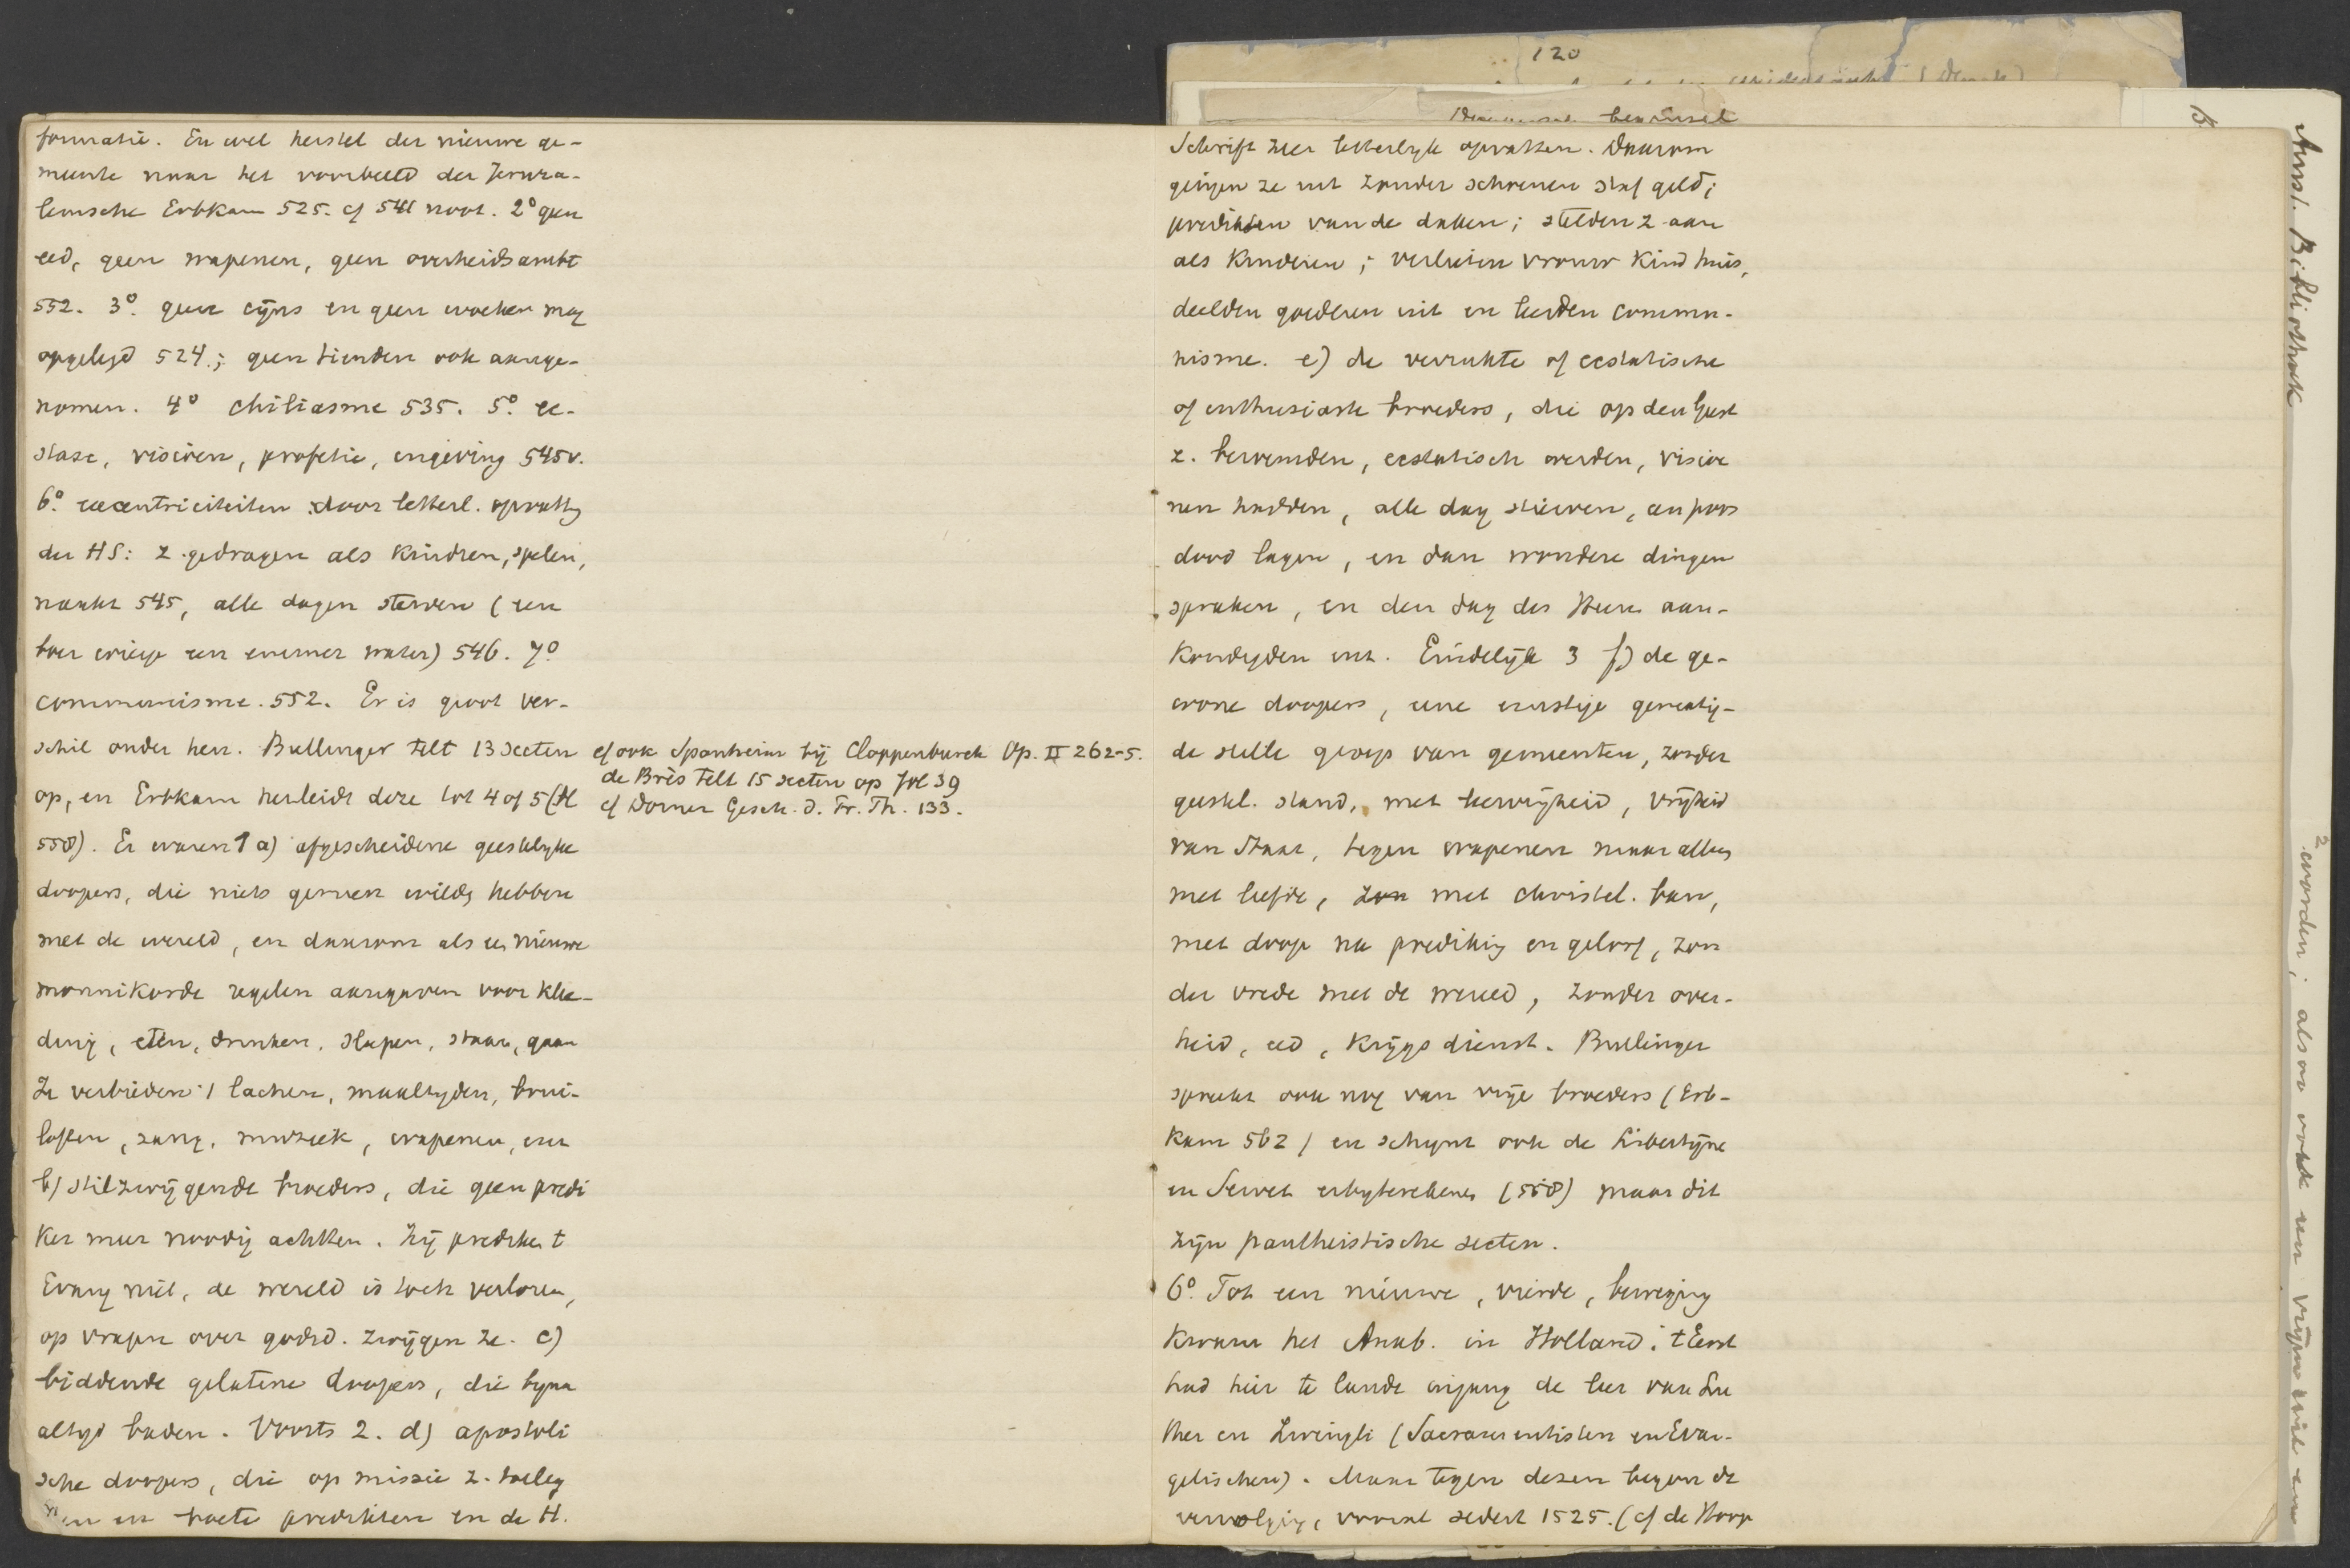 120
formatie. En wel herstel der nieuwe ge-
meente naar het voorbeeld der Jeruza-
lemsche Erbkam 525. cf 541 noot. 2° geen
eed, geen wapenen, geen overheidsambt
552. 3° geen cijns en geen woeker mag
opgelegd 524.; geen tienden ook aange-
nomen. 4° chiliasme 535. 5° ec-
stase, visioen, profetie, ingeving 545v.
6° excentriciteiten door letterl. opvattg
der HS: z. gedragen als kindren, spelen,
naakt 545, alle dagen sterven (een
boer wierp een emmer water) 546. 7°
communisme. 552. Er is groot ver-
schil onder hen. Bullinger telt 13 secten
op, en Erbkam herleidt deze tot 4 of 5 (bl
558). Er waren 1 a) afgescheidene geestelyke
doopers, die niets gemeen wilden hebben
met de wereld, en daarom als een nieuwe
monnikorde regelen aangaven voor klee-
ding, eten, drinken, slapen, staan, gaan
Ze verbieden lachen, maaltyden, brui-
loften, zang, muziek, wapenen, enz
b) stilzwijgende broeders, die geen predi
ker meer noodig achtten. Zij prediken t
Evang niet, de wereld is toch verloren,
op vragen over godsd. zwijgen ze. c)
biddende gelatene doopers, die byna
altyd baden. Voorts 2. d) apostoli
sche doopers, die op missie z. toeleg
den en boete predikten en de H.
cf ook Spanheim bij Cloppenburch Op. II 262-5.
de Brès telt 15 secten op fol 39
cf Dorner Gesch. d. Pr. Th. 133.
Schrift zeer letterlyk opvatten. Daarom
gingen ze uit zonder schoenen staf geld;
predikten van de daken; stelden z aan
als kinderen; verlieten vrouw kind huis,
deelden goederen uit en leerden commu-
nisme. e) de verrukte of ecstatische
of enthusiaste broeders, die op den Geest
z. beroemden, ecstatisch werden, visioe
nen hadden, alle dag stierven, een poos
dood lagen, en dan wondere dingen
spraken, en den dag des Heeren aan-
kondigden enz. Eindelijk 3 f) de ge-
wone doopers, eene ernstige gematig-
de stille groep van gemeenten, zonder
geestel. stand, met leervrijheid, vrijheid
van Staat, tegen wapenen maar alles
met liefde, zon met christel. ban,
met doop na prediking en geloof, zon
der vrede met de wereld, zonder over-
heid, eed, krijgsdienst. Bullinger
spreekt ook nog van vrije broeders (Erb-
kam 562) en schynt ook de Libertijne
en Servet erbyterekenen (558) maar dit
zijn pantheistische secten.
6° Tot een nieuwe, vierde, beweging
kwam het Anab. in Holland. t Eerst
had hier te lande ingang de leer van Lu
ther en Zwingli (Sacramentisten en Evan-
gelischen). Maar tegen dezen begon de
vervolging, vooral sedert 1525. (cf de Hoop
Amst. Bibliotheek
worden; alsoo ook een vrijen wil en